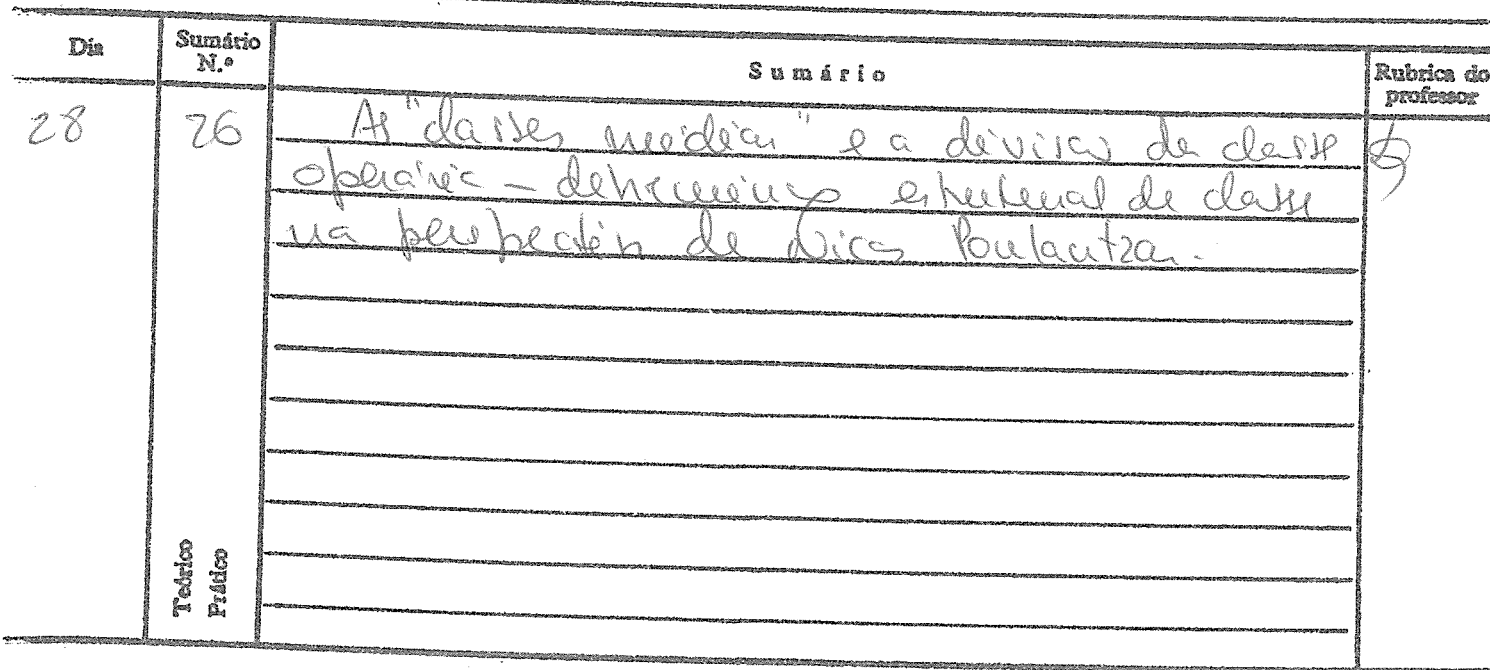 Dia
Sumário N.º
Sumário
Rubrica do professor
28
26
As "classes médias" e a divisão da classe
operária - determinação estrutural de classe
na perspectiva de Nicos Poulantzas.
Teórico
Prático